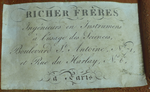 RICHER FRÈRES
Ingénieurs en Instrumens
à l'usage des Sciences,
Boulevard St. Antoine, No.
et Rue du Harlay, No.
à Paris.